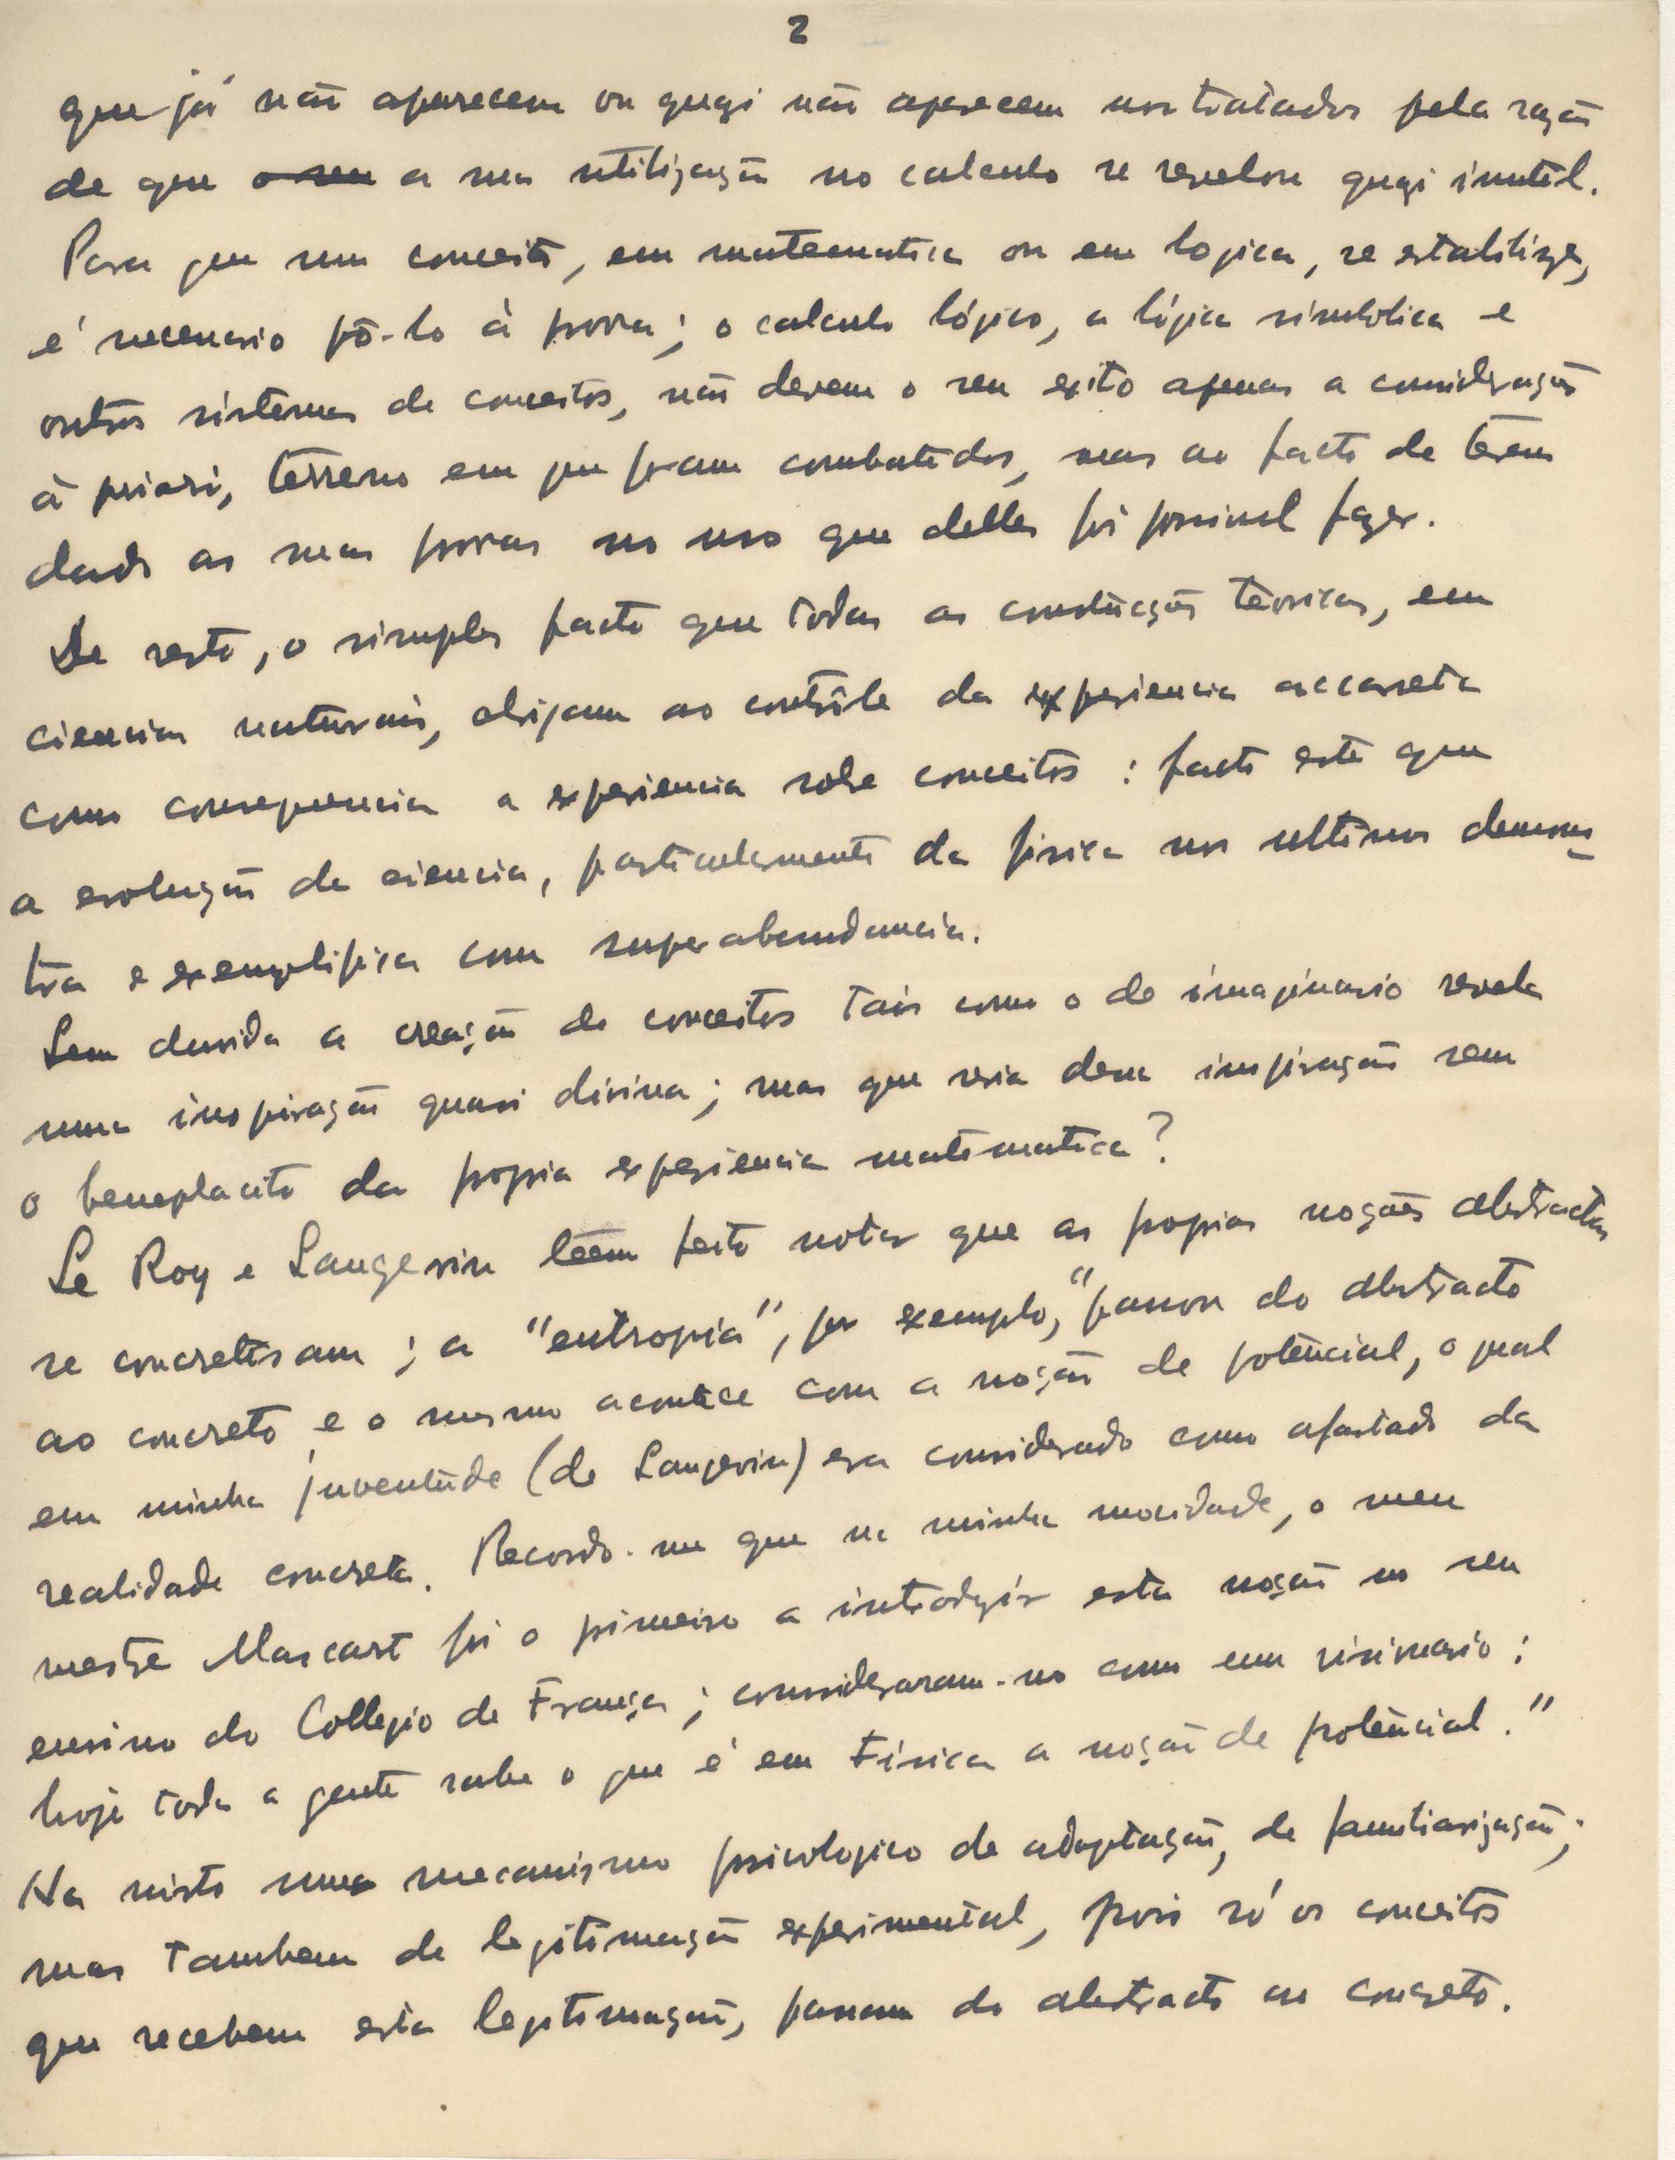 2
que já não aparecem ou quasi não aparecem nos tratados pela razão
de que o seu a sua utilização no calculo se revelou quasi inutil.
Para que um conceito, em matematica ou em logica, se estabilize,
é necessario pô-lo à prova; o calculo lógico, a lógica simbolica e
outros sistemas de conceitos, não devem o seu exito apenas a considerações
à priori, terreno em que foram combatidos, mas ao facto de terem
dado as suas provas no uso que delles foi possivel fazer.
De resto, o simples facto que todas as construções teoricas, em
ciencias naturais, obrigam ao contrôle da experiencia accarreta
como consequencia a experiencia sobre conceitos: facto este que
a evolução da ciencia, particularmente da fisica nos ultimos demons
tra e exemplifica com superabundancia.
Sem duvida a creação de conceitos tais como o do imaginario revela
uma inspiração quasi divina; mas que seria dessa inspiração sem
o beneplacito da propria experiencia matematica?
Le Roy e Langevin têem feito notar que as proprias noções abstractas
se concretisam; a "entropia", por exemplo, "passou do abstracto
ao concreto e o mesmo acontece com a noção de potêncial, o qual
em minha juventude (de Langevin) era considerado como afastado da
realidade concreta. Recordo-me que na minha mocidade, o meu
mestre Mascart foi o primeiro a introdyzir esta noção no seu
ensino do Collegio de França; consideraram-no como um visionario:
hoje toda a gente sabe o que é em Fisica a noção de potêncial."
Ha nisto um mecanismo psicologico de adaptação, de familiarização;
mas tambem de legitimação experimental, pois só os conceitos
que recebem esta legitimação, passam do abstracto ao concreto.